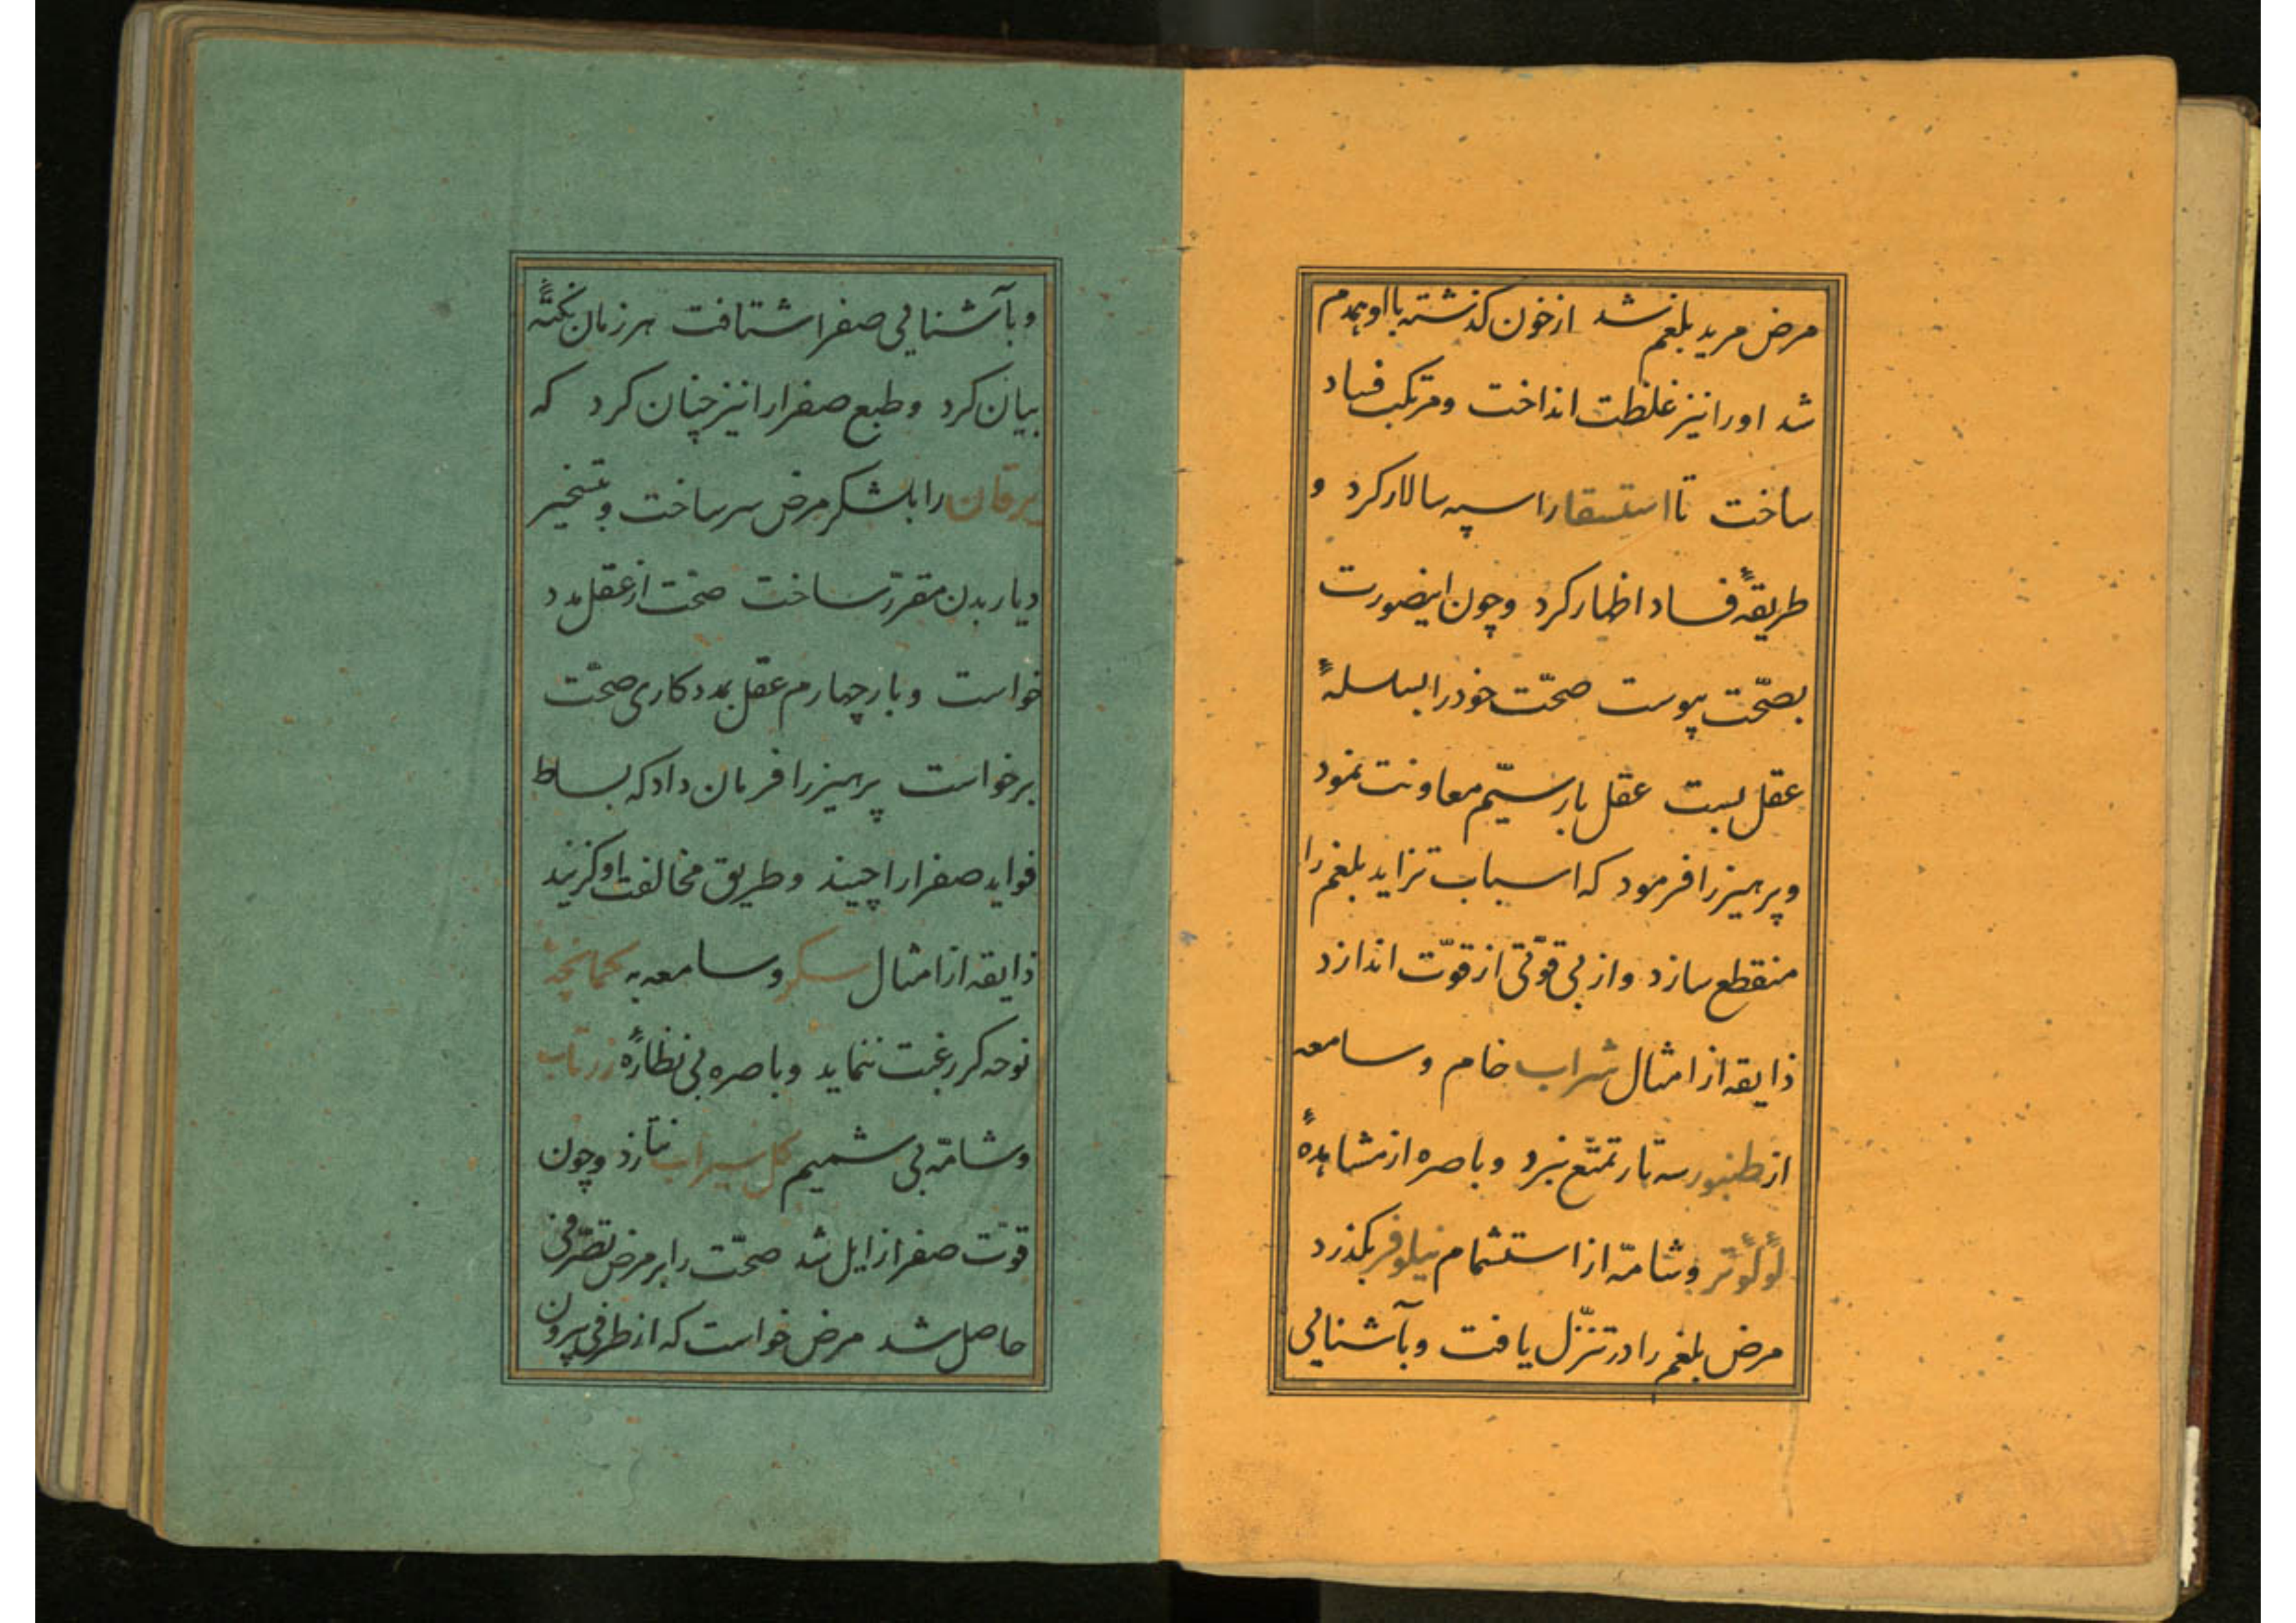 مرض مرید بلغم شد از خون کذشته با او همدم
شد اورا نیز غلظت انداخت و مرتکب فساد
ساخت تا استسقا را سپه سالار کرد و
طریقهٔ فساد اظهار کرد و چون اینصورت
بصحّت پیوست صحّت خود را بسلسلهٔ
عقل بست عقل بار سیّم معاونت نمود
و پرهیز را فرمود که اسباب تزاید بلغم را
منقطع سازد و از بی قوّتی از قوّت اندازد
ذایقه از امثال شراب خام و سامعه
از طنبور سه تار تمتّع نبرد و باصره از مشاهدهٔ
لؤلؤ تر و شامّه از استشمام نیلوفر بکذرد
مرض بلغم را در تنزّل یافت و بآشنایی
و بآشنایی صفرا شتافت هر زمان نکتهٔ
بیان کرد و طبع صفرا را نیز چنان کرد که
یرقان را بلشکر مرض سر ساخت و بتسخیر
دیار بدن مقرر ساخت صحت از عقل مدد
خواست و بار چهارم عقل بمددکاری صحّت
برخواست پرهیز را فرمان داد که بساط
فواید صفرا را چیند و طریق مخالفت او کزیند
ذایقه از امثال سکر و سامعه به کمانچهٔ
نوحه کر رغبت ننماید و باصره بی نظارهٔ زرتاب
و شامّه بی شمیم کل سیراب نتازد و چون
قوّت صفرا زایل شد صحّت را بر مرض تصرّفی
حاصل شد مرض خواست که از طرفی بیرون